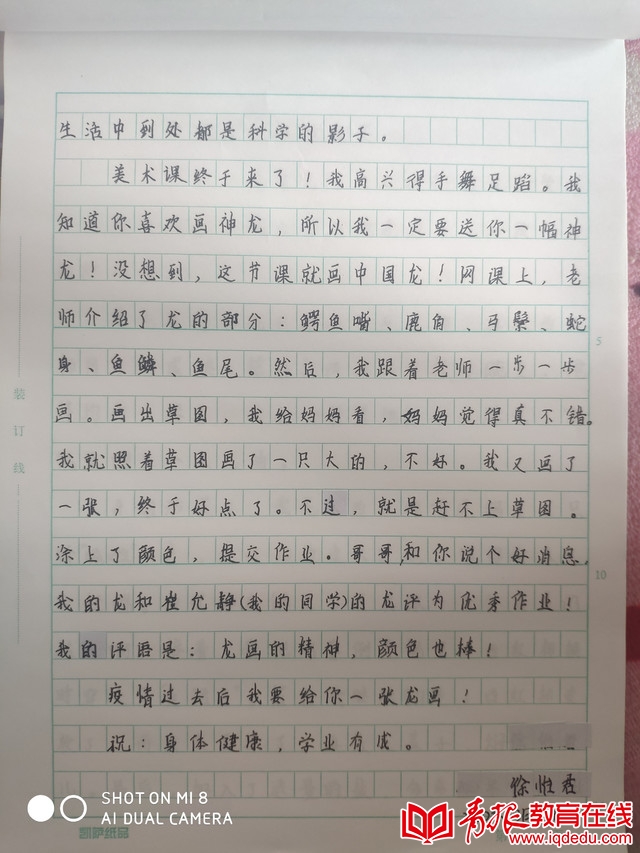 生活中到处都是科学的影子。
美术课终于来了！我高兴得手舞足蹈。我
知道你喜欢画神龙，所以我一定要送你一幅神
龙！没想到，这节课就画中国龙！网课上，老
师介绍了龙的部分：鳄鱼嘴、鹿角、马鬃、蛇
身、鱼鳞、鱼尾。然后，我跟着老师一步一步
画。画出草图，我给妈妈看，妈妈觉得真不错。
我就照着草图画了一只大的，不好。我又画了
一张，终于好点了。不过，就是赶不上草图。
涂上了颜色，提交作业。哥哥，和你说个好消息，
我的龙和崔允静(我的同学)的龙评为优秀作业！
我的评语是：龙画的精神，颜色也棒！
疫情过去后我要给你一张龙画！
祝：身体健康，学业有成。
徐
装订线
5
10
凯萨纸品
SHOT ON MI 8
AI DUAL CAMERA
青报教育在线
www.iqdedu.com